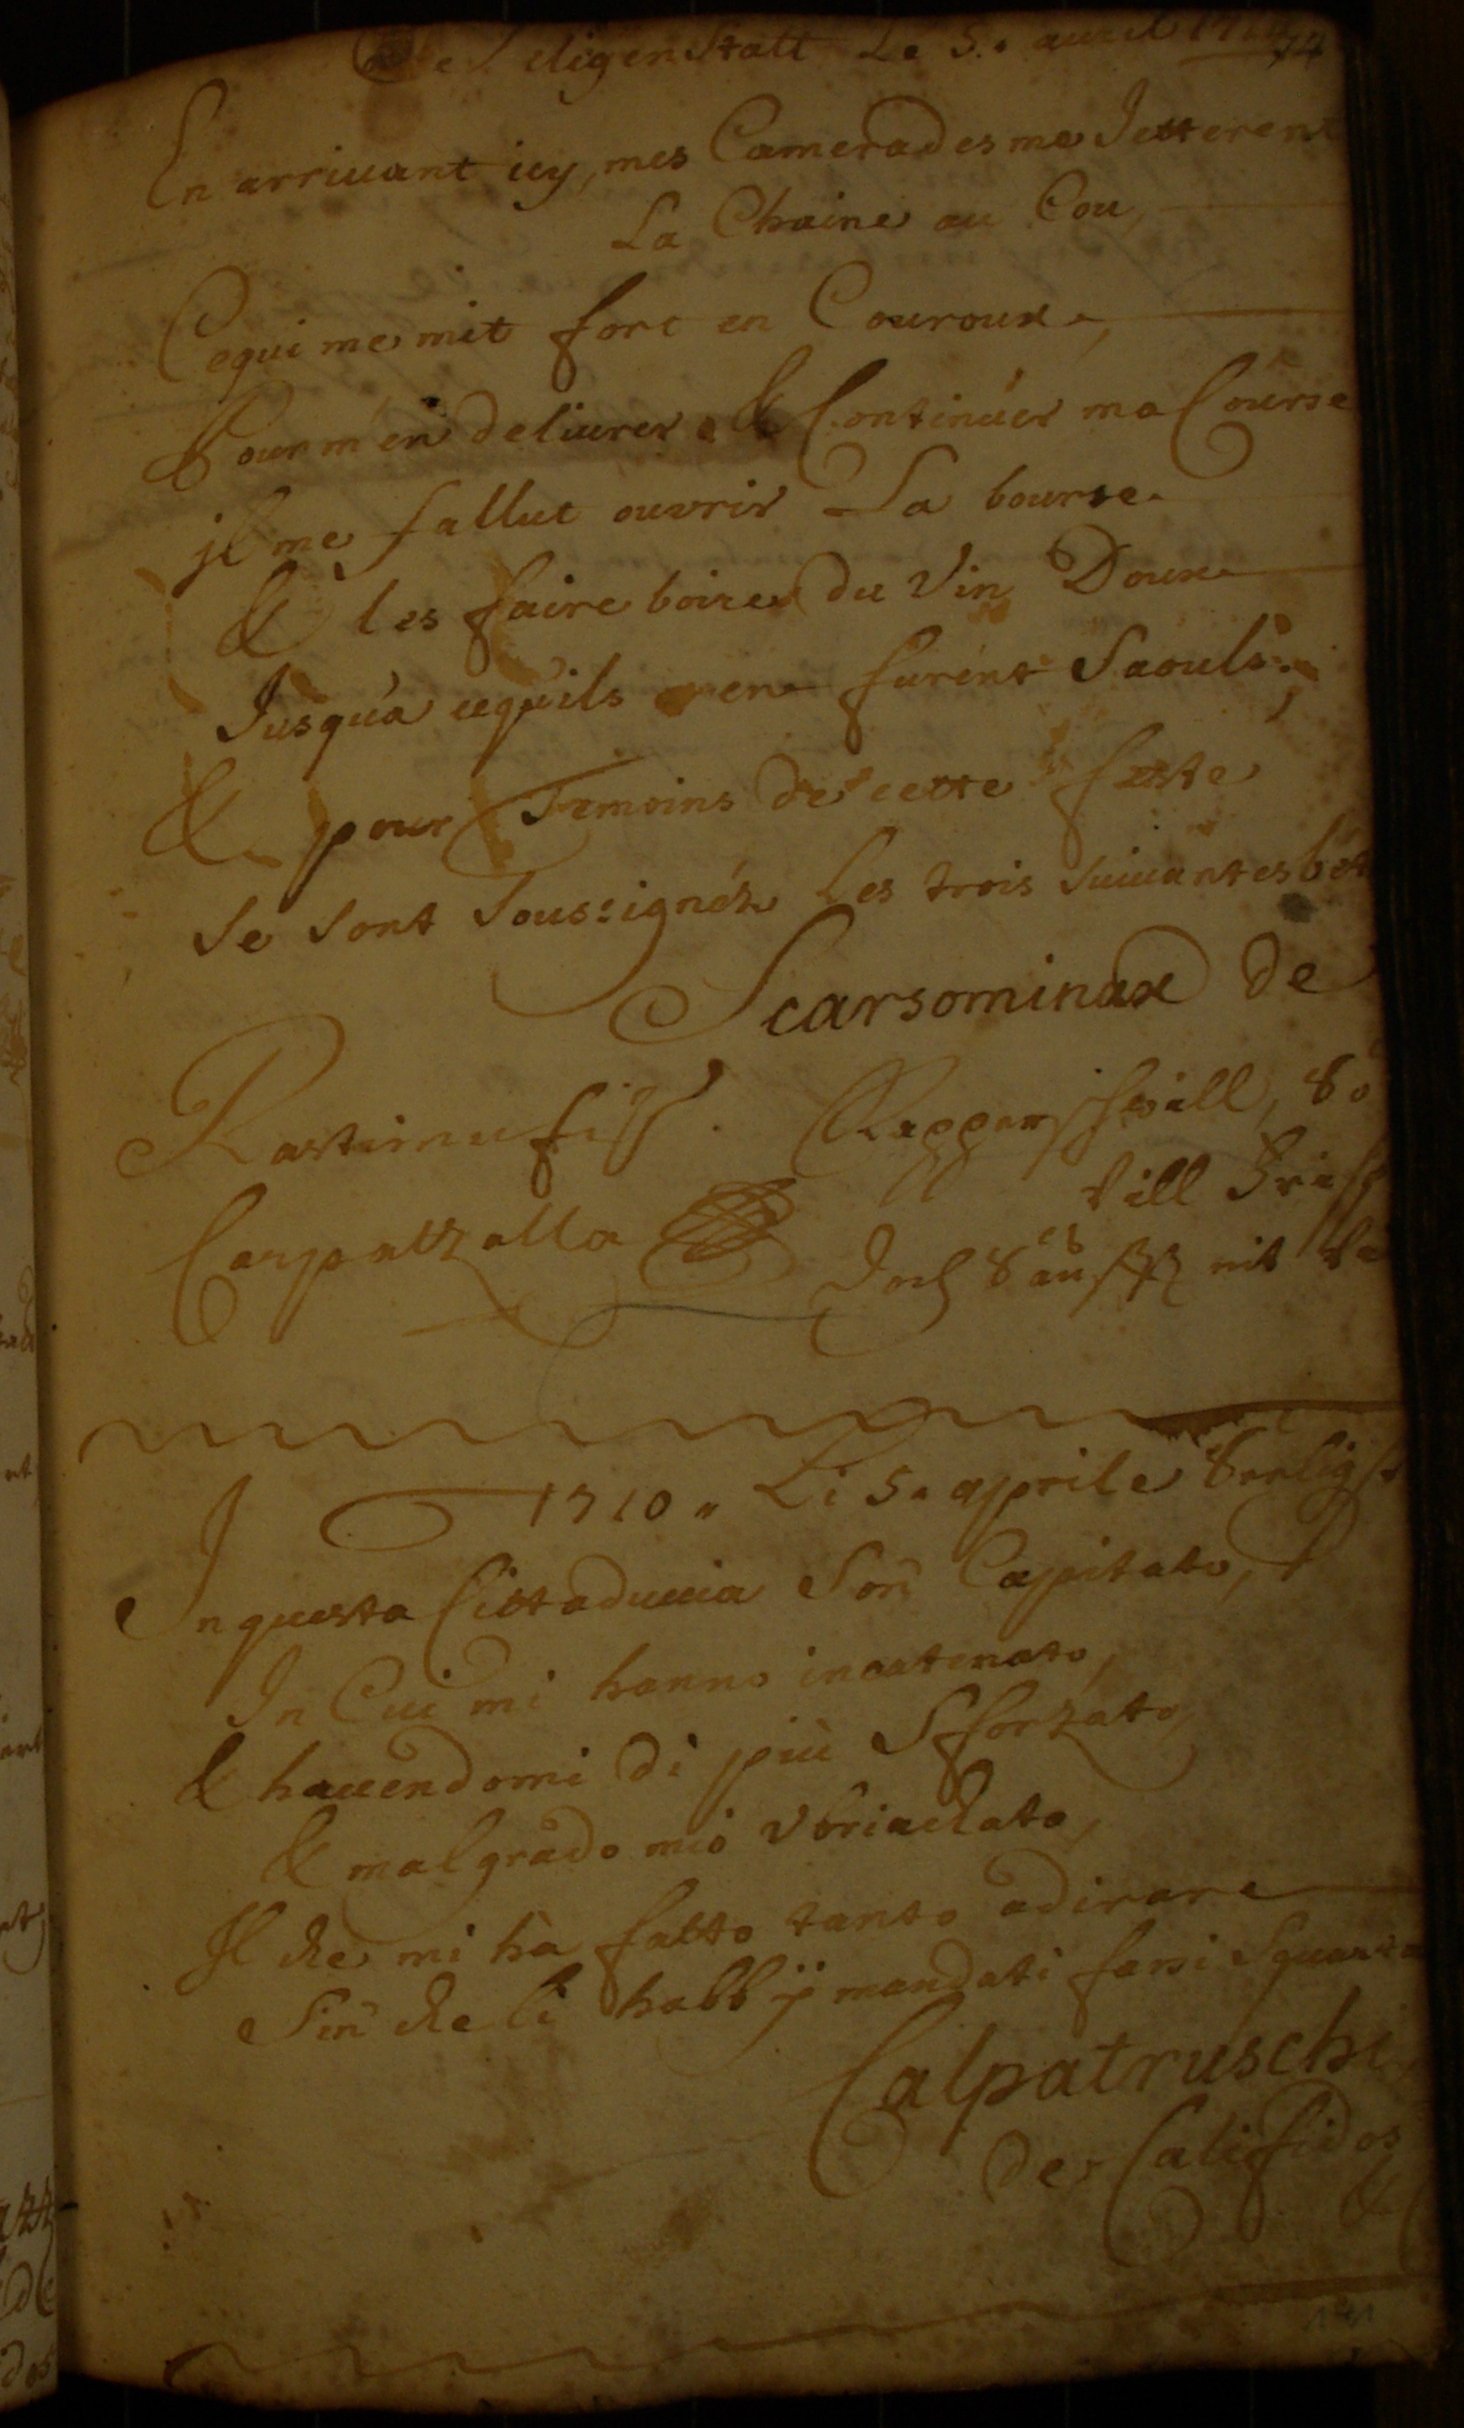 Seligenstatt Le 5. auril 1710
En arriuant icy, mes Camerades me Jetterent
La Chaine au Cou,
Cequi me mit fort en Couroux,
Pour m'en deliurer & Continuer ma Course
jl me fallut ouvrir La bourse
& les faire boire du Vin Doux
Jusqu'a cequ'ils en furent Saouls,
& pour Temoins de cette feste
Se sont Soussignéz Les trois suiuantes bêt
Scarsominax de
Rapperschwill, So
Carpatzalla
vill Frisst
doch Saufft es nit
1710 Li 5. aprile Seeligst
In questa Cittaduccia Son Capitato,
In Cui mi hanno incatenato,
& hauendomi di più Sforzato,
& malgrado mio Vbriachato,
Il che mi hà fatto tanto adirare
Sin che li habbÿ mandati farsi Squarta
Calpatrusche
de Califfidos
&
141